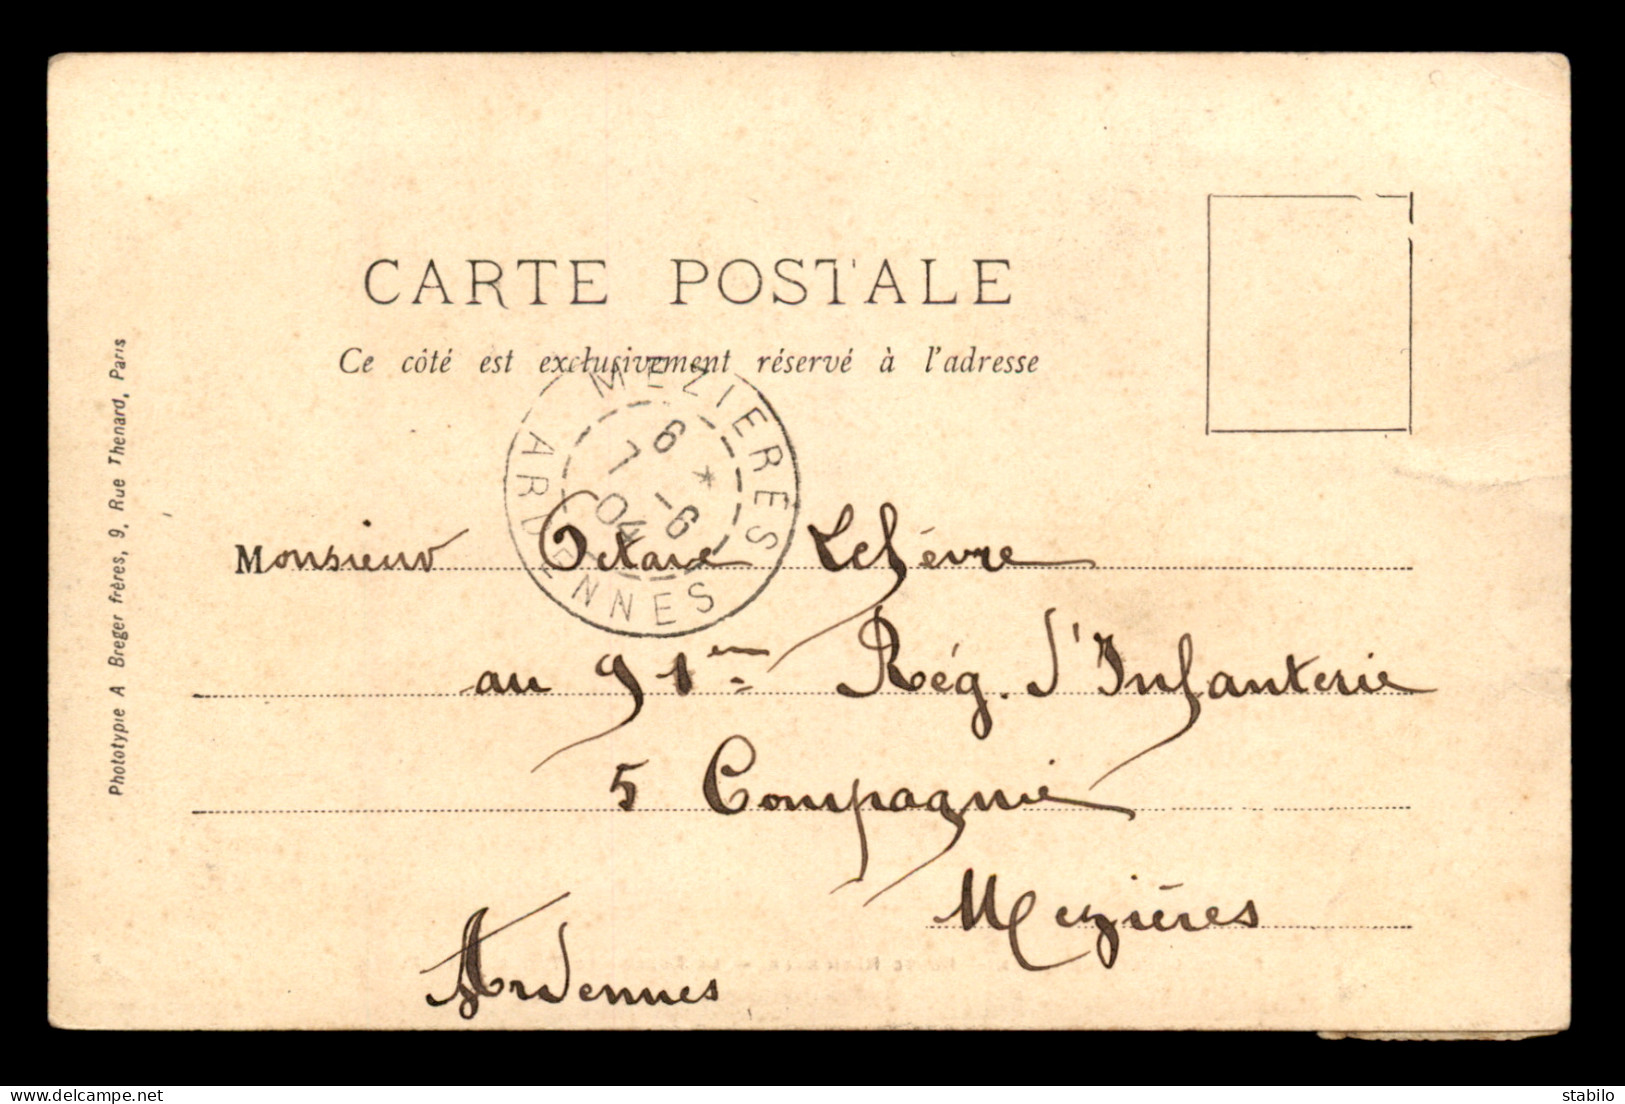 CARTE POSTALE
Ce côté est exclusivement réservé à l'adresse
MEZIERES
6 * 
7 -6
04
ARDENNES
Monsieur Octave Lefévre
au 91em Rég. d'Infanterie
5 Compagnie
Mezières
Ardennes
Phototypie A Breger frères, 9, Rue Thenard, Paris
delcampe.net
stabilo